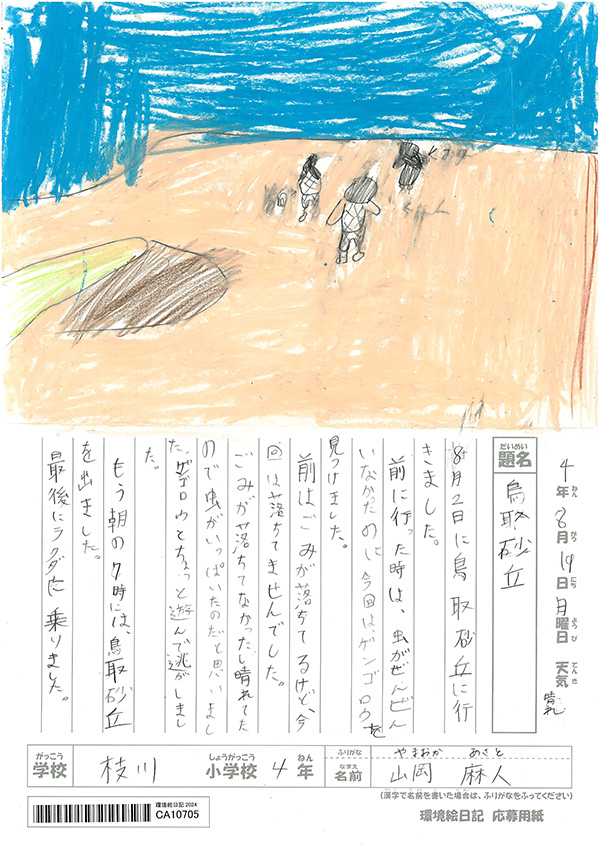 4年8月19日月曜日 天気 晴れ
ねん がつ にち ようび てんき
だいめい
題名 鳥取砂丘
8月2日に鳥取砂丘に行
きました。
前に行った時は、虫がぜんぜん
いなかたのに今回は、ゲンゴロウを
見つけました。
前はごみが落ちてるけど、今
回は落ちてませんでした。
ごみが落ちてなかったし晴れてた
ので虫がいっぱいたのだと思いまし
た。ゲンゴロウとちょっと遊んで逃がしまし
た。
もう朝の7時には、鳥取砂丘
を出ました。
最後にラクダに乗りました。
がっこう しょうがっこう ねん ふりがな やまおか あさと
学校 枝川 小学校 4年 なまえ 名前 山岡 麻人
(漢字で名前を書いた場合は、ふりがなをふってください)
環境絵日記 2024
CA10705
環境絵日記 応募用紙